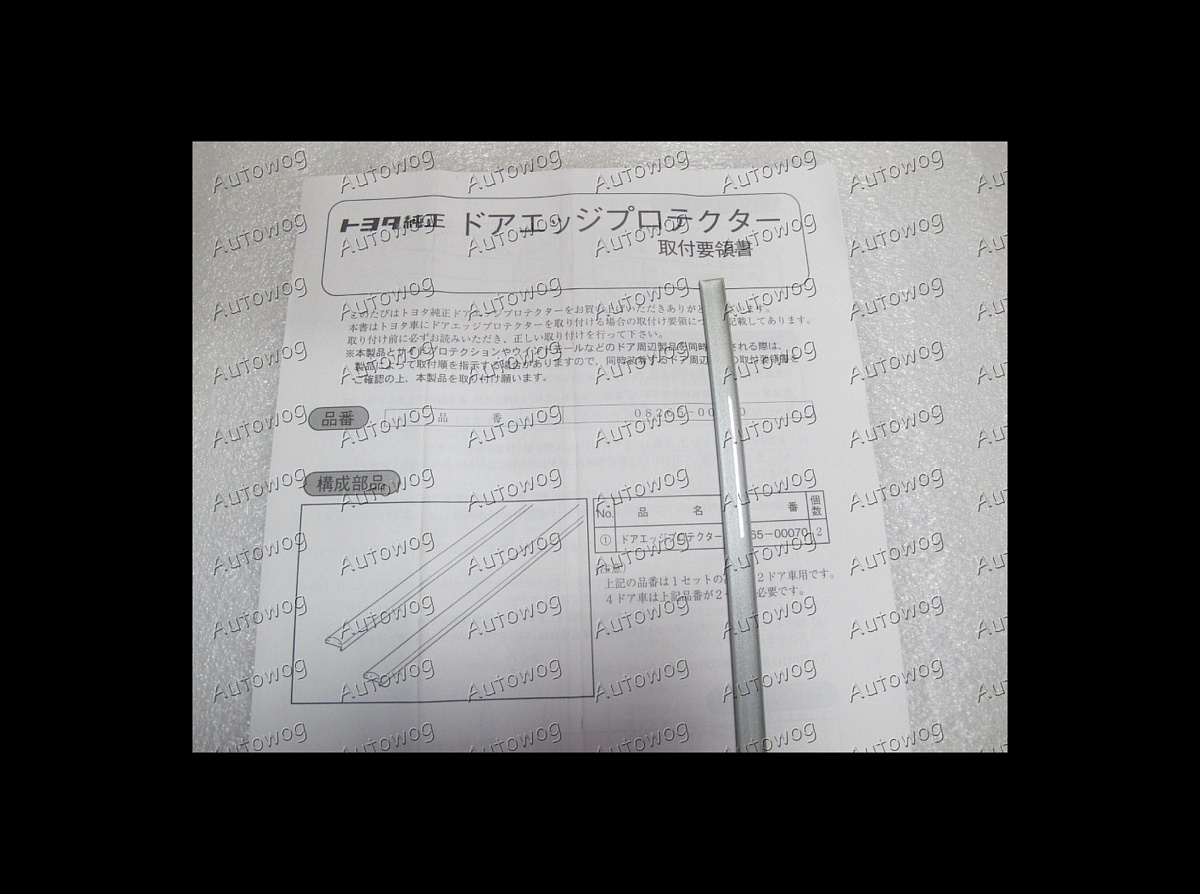 トヨタ純正 ドアエッジプロテクター
取付要領書
このたびはトヨタ純正ドアエッジプロテクターをお買い上げいただきありが います。
本書はトヨタ車にドアエッジプロテクターを取り付ける場合の取付け要領につ 記載してあります。
取り付け前に必ずお読みいただき、正しい取り付けを行って下さい。
※本製品とサイドプロテクションやウィンドモールなどのドア周辺製品を同時 される際は、
製品によって取付順を指示する場合がありますので、同時装着するドア周辺 の取付要領書を
ご確認の上、本製品を取り付け願います。
品番 品 番
構成部品
No. 品 名 番 個数
① ドアエッジプロテクター 65-00070 2
(注意)
上記の品番は1セットの 2ドア車用です。
4ドア車は上記品番が2 必要です。
Autowog